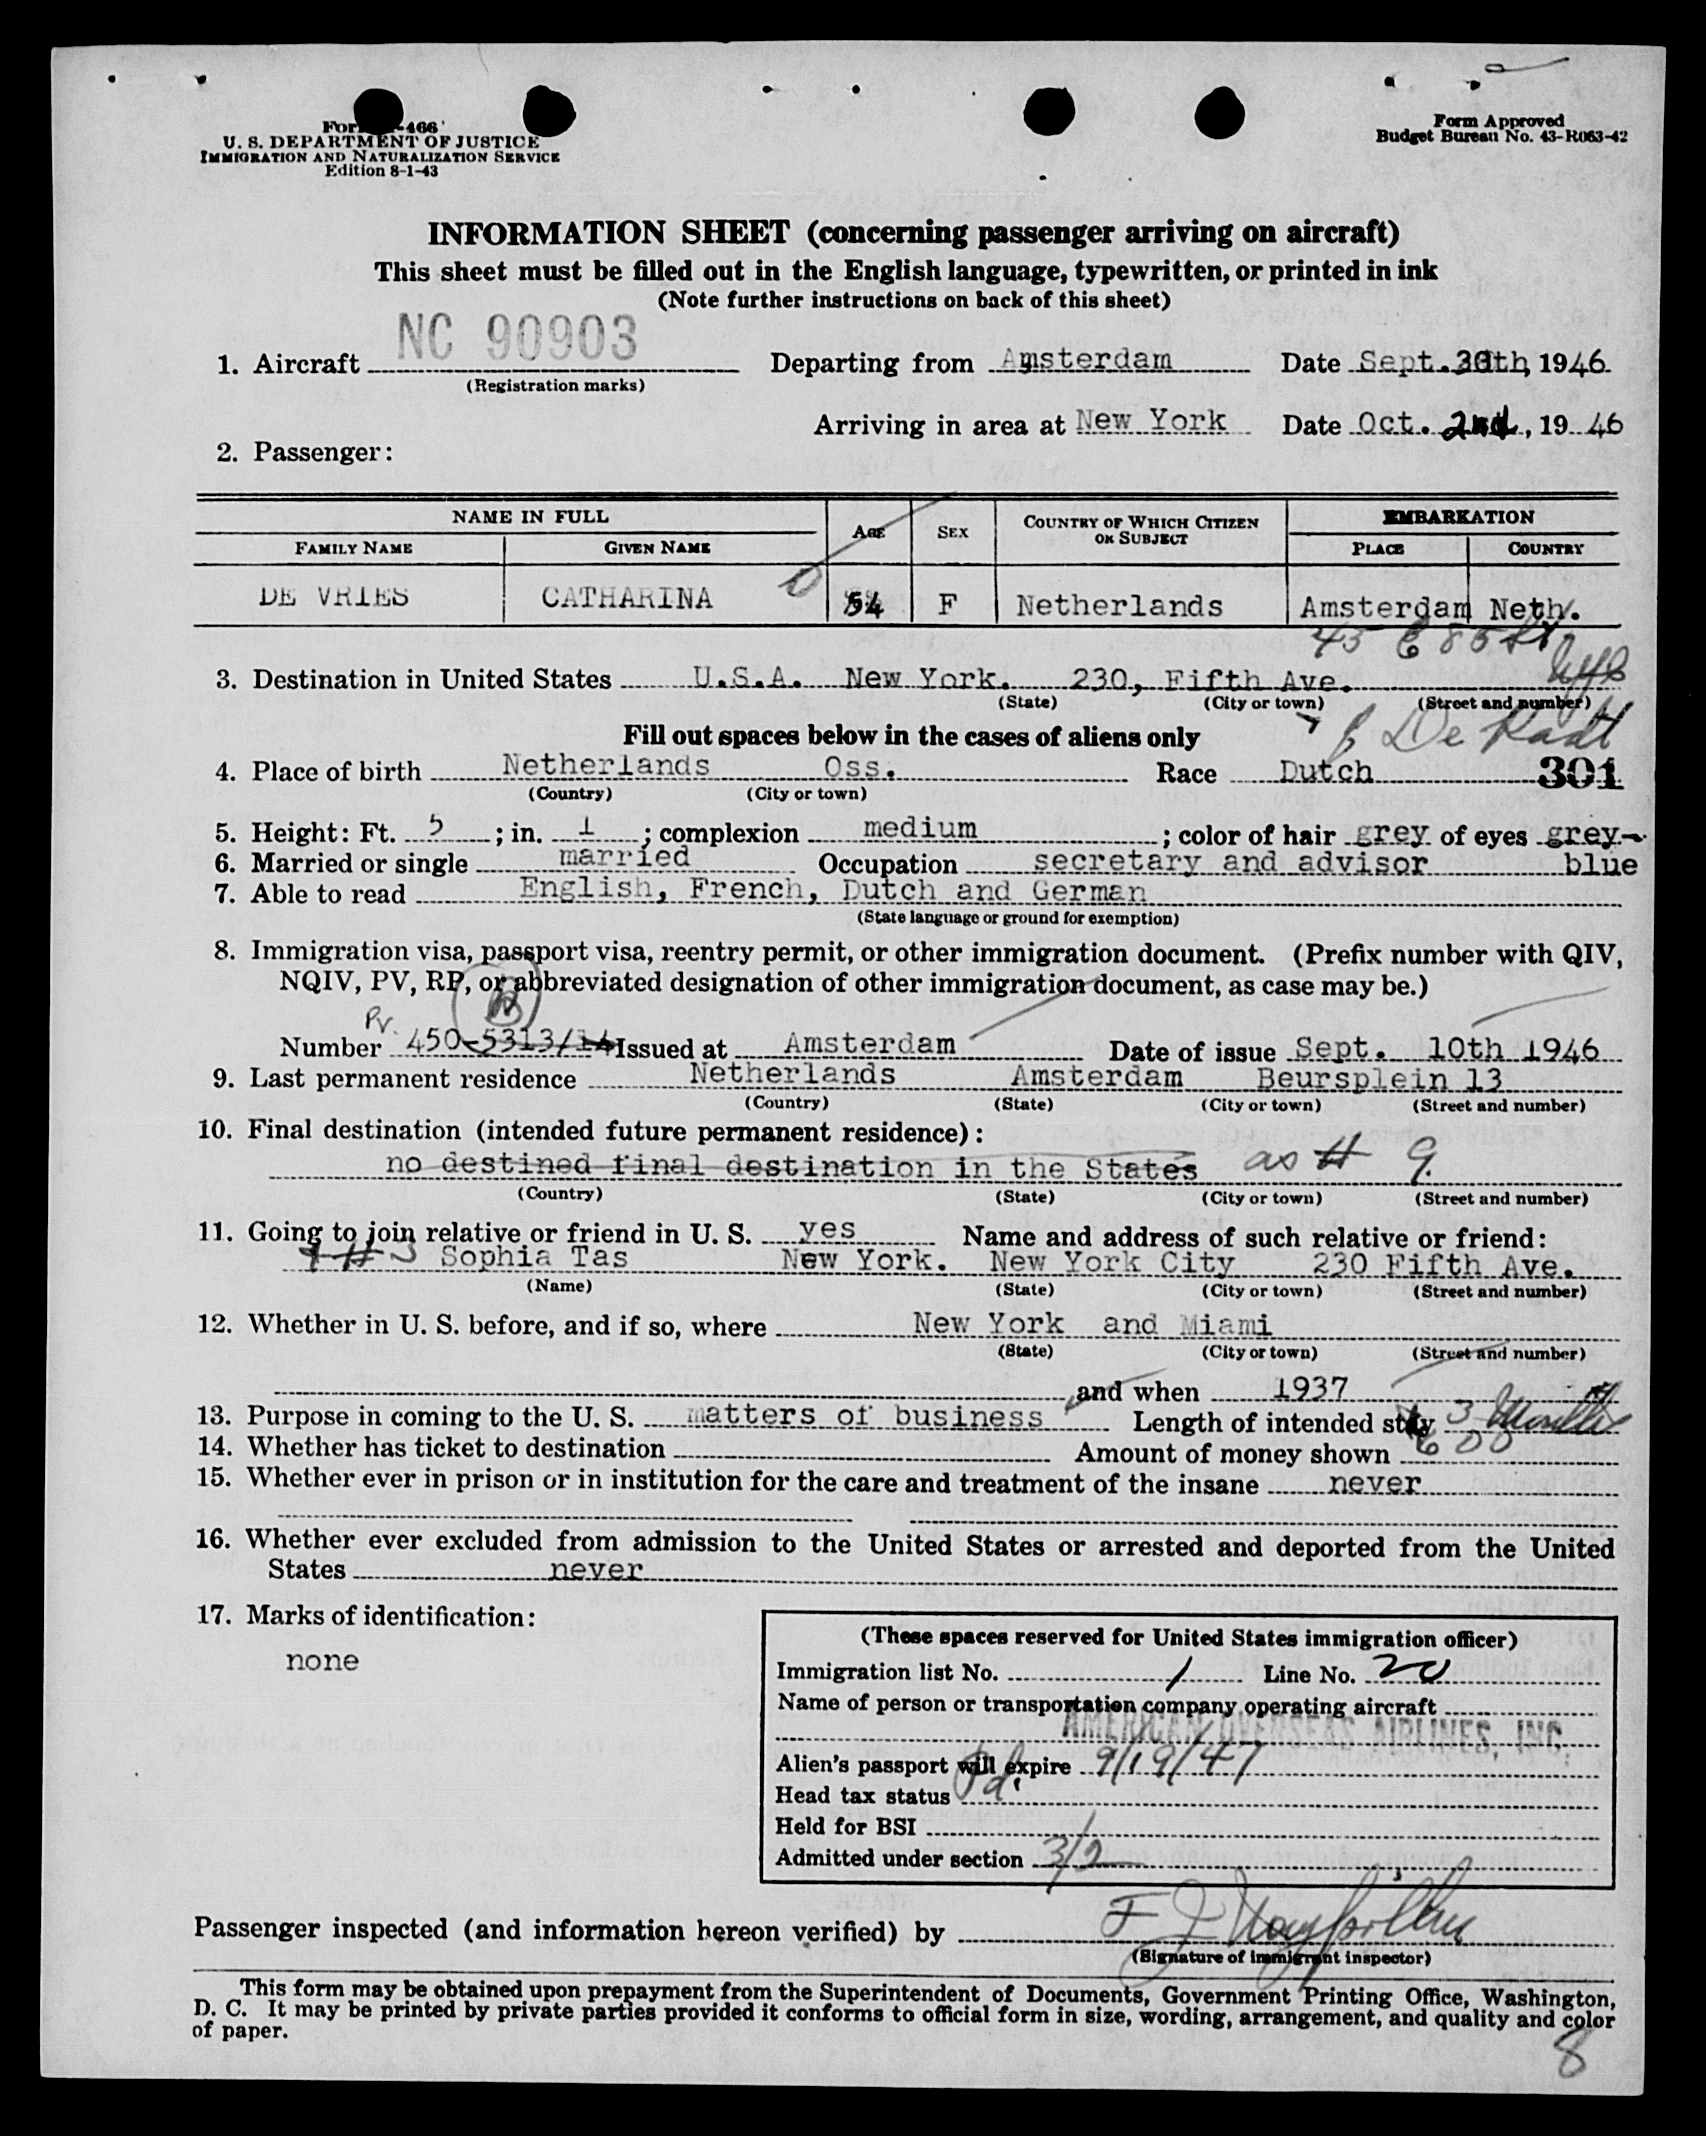 Form I-466
U. S. DEPARTMENT OF JUSTICE
IMMIGRATION AND NATURALIZATION SERVICE
Edition 8-1-43
Form Approved
Budget Bureau No. 43-R063-42
INFORMATION SHEET (concerning passenger arriving on aircraft)
This sheet must be filled out in the English language, typewritten, or printed in ink
(Note further instructions on back of this sheet)
1. Aircraft NC 90903 Departing from Amsterdam Date Sept. 30th, 1946
(Registration marks)
Arriving in area at New York Date Oct. 2nd, 19 46
2. Passenger:
NAME IN FULL AGE SEX COUNTRY OF WHICH CITIZEN OR SUBJECT EMBARKATION
FAMILY NAME GIVEN NAME PLACE COUNTRY
DE VRIES CATHARINA 54 F Netherlands Amsterdam Neth.
45 E 85 St
NYC
3. Destination in United States U.S.A. New York. 230, Fifth Ave.
(State) (City or town) (Street and number)
Fill out spaces below in the cases of aliens only
De Kadt
4. Place of birth Netherlands Oss. Race Dutch 301
(Country) (City or town)
5. Height: Ft. 5; in. 1; complexion medium; color of hair grey of eyes grey-
6. Married or single married Occupation secretary and advisor blue
7. Able to read English, French, Dutch and German
(State language or ground for exemption)
8. Immigration visa, passport visa, reentry permit, or other immigration document. (Prefix number with QIV,
NQIV, PV, RP, or abbreviated designation of other immigration document, as case may be.)
Pv.
Number 450-5313/14 Issued at Amsterdam Date of issue Sept. 10th 1946
9. Last permanent residence Netherlands Amsterdam Beursplein 13
(Country) (State) (City or town) (Street and number)
10. Final destination (intended future permanent residence):
no destined final destination in the States as # 9.
(Country) (State) (City or town) (Street and number)
11. Going to join relative or friend in U. S. yes Name and address of such relative or friend:
# 3 Sophia Tas New York. New York City 230 Fifth Ave.
(Name) (State) (City or town) (Street and number)
12. Whether in U. S. before, and if so, where New York and Miami
(State) (City or town) (Street and number)
and when 1937
13. Purpose in coming to the U. S. matters of business Length of intended stay 3 Months
14. Whether has ticket to destination Amount of money shown 600
15. Whether ever in prison or in institution for the care and treatment of the insane never
16. Whether ever excluded from admission to the United States or arrested and deported from the United
States never
17. Marks of identification:
none
(These spaces reserved for United States immigration officer)
Immigration list No. 1 Line No. 20
Name of person or transportation company operating aircraft
AMERICAN OVERSEAS AIRLINES, INC.
Alien's passport will expire 9/19/47
Head tax status Pd.
Held for BSI
Admitted under section 3/2
Passenger inspected (and information hereon verified) by
(Signature of immigrant inspector)
This form may be obtained upon prepayment from the Superintendent of Documents, Government Printing Office, Washington,
D. C. It may be printed by private parties provided it conforms to official form in size, wording, arrangement, and quality and color
of paper.
8